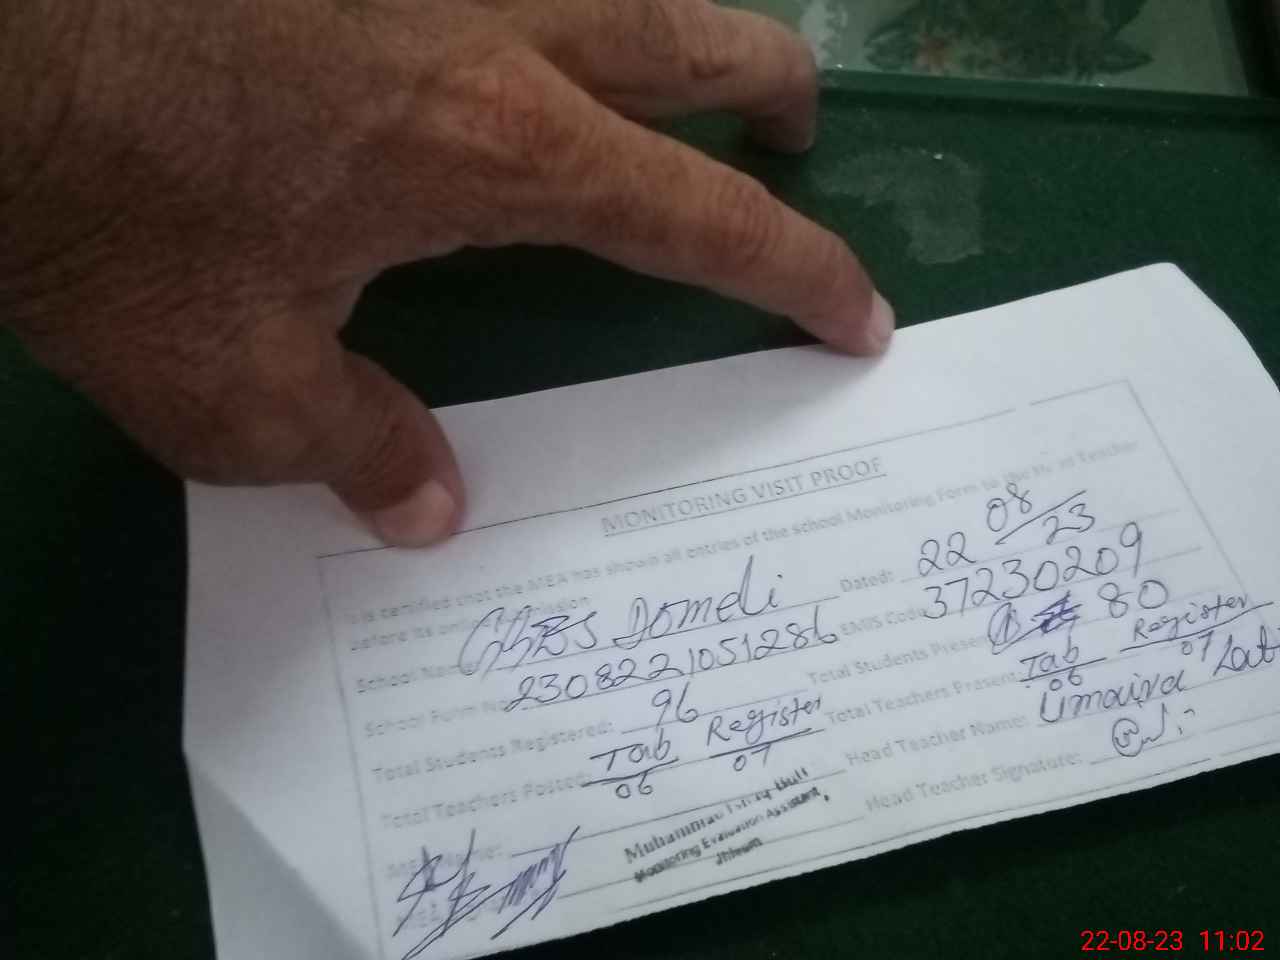 MONITORING VISIT PROOF
It is certified that the MEA has shown all entries of the school Monitoring Form to the Head Teacher
before its
School Name: Domeli Dated: 22 08/23
School Form No: 2308221051286 EMIS Code: 37230209
Total Students Registered: 96 Total Students Present: 80
Total Teachers Posted: Tab 06 Register 07 Total Teachers Present: Tab 06 Register 07
Head Teacher Name: Umaira
Muhammad
Monitoring Evaluation Assistant,
Jhelum
Head Teacher Signature:
22-08-23 11:02